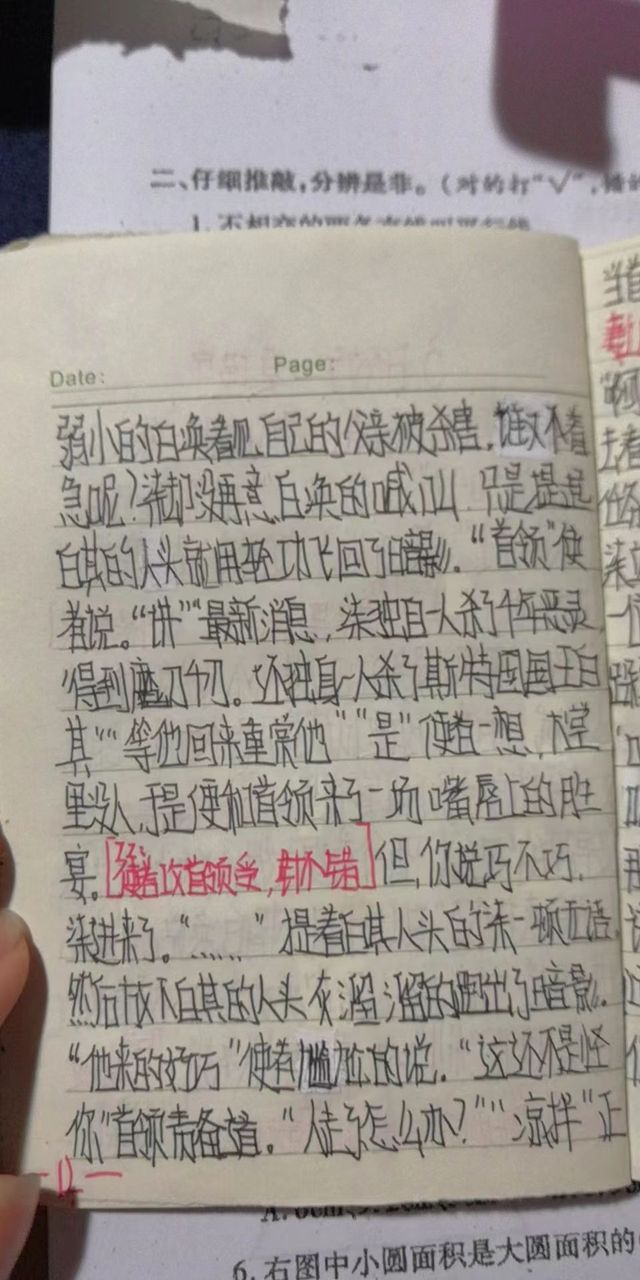 二、仔细推敲，分辨是非。（对的打“√”，错的
1. 不相交的两条直线叫平行线
Date:
Page:
弱小的白唤看见自己的父亲被杀害，谁又不着
急呢？柒却没再意白唤的喊叫 只是提起
白其的人头就用轻功飞回了暗影。“首领”使
者说。“讲”“最新消息，柒独自一人杀了千年恶灵，
得到魔刀千刃。还独身一人杀了斯特国国王白
其”“等他回来重赏他”“是”使者一想，大堂
里没人，于是便和首领来了一场嘴唇上的胜
宴。[使者攻首领受，别不错]但，你说巧不巧，
柒进来了。“……”提着白其人头的柒一顿无语，
然后放下白其的人头 灰溜溜的跑出了暗影。
“他来的好巧”使者尴尬的说。“这还不是怪
你”首领责备道。“人走了怎么办？”“凉拌”正
-14-
6. 右图中小圆面积是大圆面积的